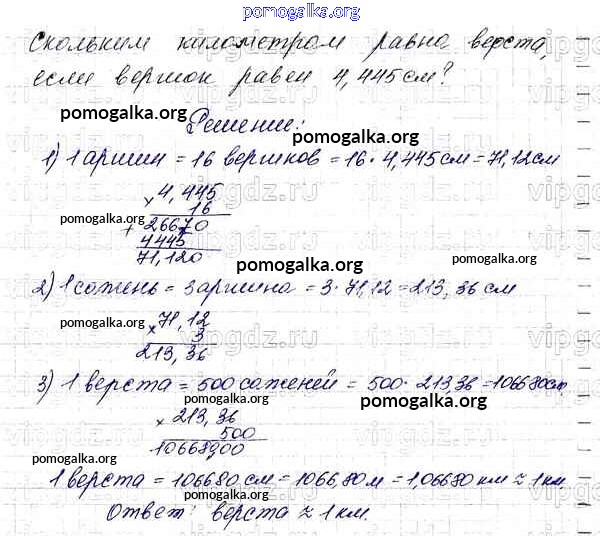 pomogalka.org
Скольким километрам равна верста,
если вершок равен 4,445 см?
pomogalka.org
Решение:
1) 1 аршин = 16 вершков = 16 · 4,445 см = 71,12 см
× 4,445
16
pomogalka.org
+ 26670
4445
71,120
pomogalka.org
2) 1 сажень = 3 аршина = 3 · 71,12 = 213,36 см
pomogalka.org
× 71,12
3
213,36
3) 1 верста = 500 саженей = 500 · 213,36 = 106680 см.
pomogalka.org
× 213,36
500
pomogalka.org
106680,00
pomogalka.org
1 верста = 106680 см = 1066,80 м = 1,06680 км ≈ 1 км.
Ответ: верста ≈ 1 км.
pomogalka.org
pomogalka.org
vipgdz.ru